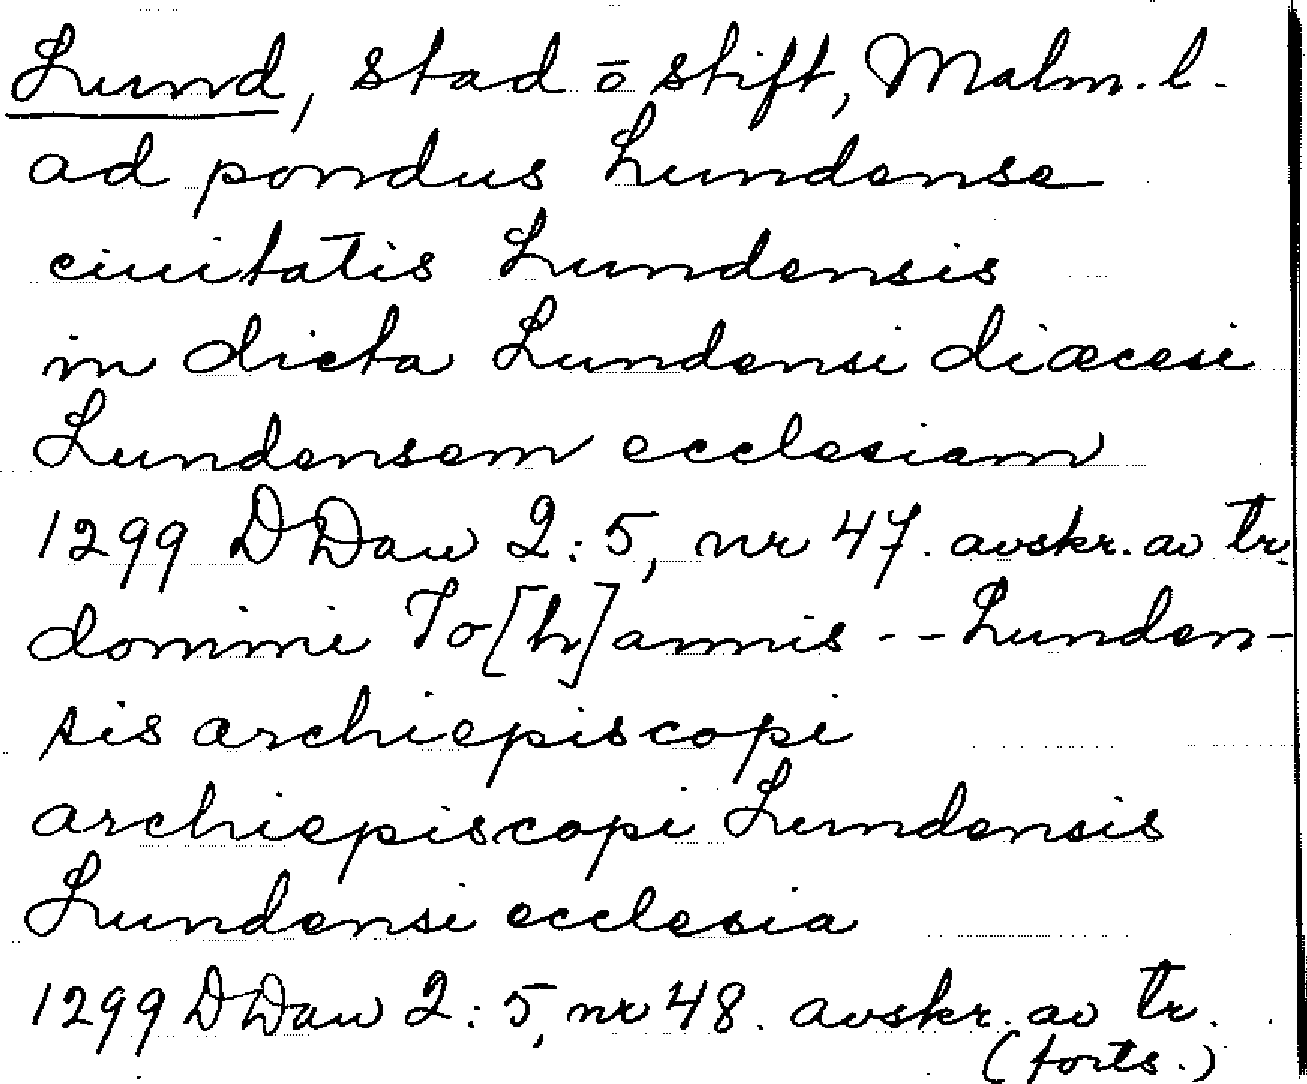 Lund, stad o̅ stift, Malm. l.
ad pondus Lundense
ciuitatis Lundensis
in dicta Lundensi diœcesi
Lundensem ecclesiam
1299 DDan 2:5, nr 47. avskr. av tr.
domini Jo[h]annis -- Lunden-
sis archiepiscopi
archiepiscopi Lundensis
Lundensi ecclesia
1299 DDan 2:5, nr 48. avskr. av tr.
(forts.)